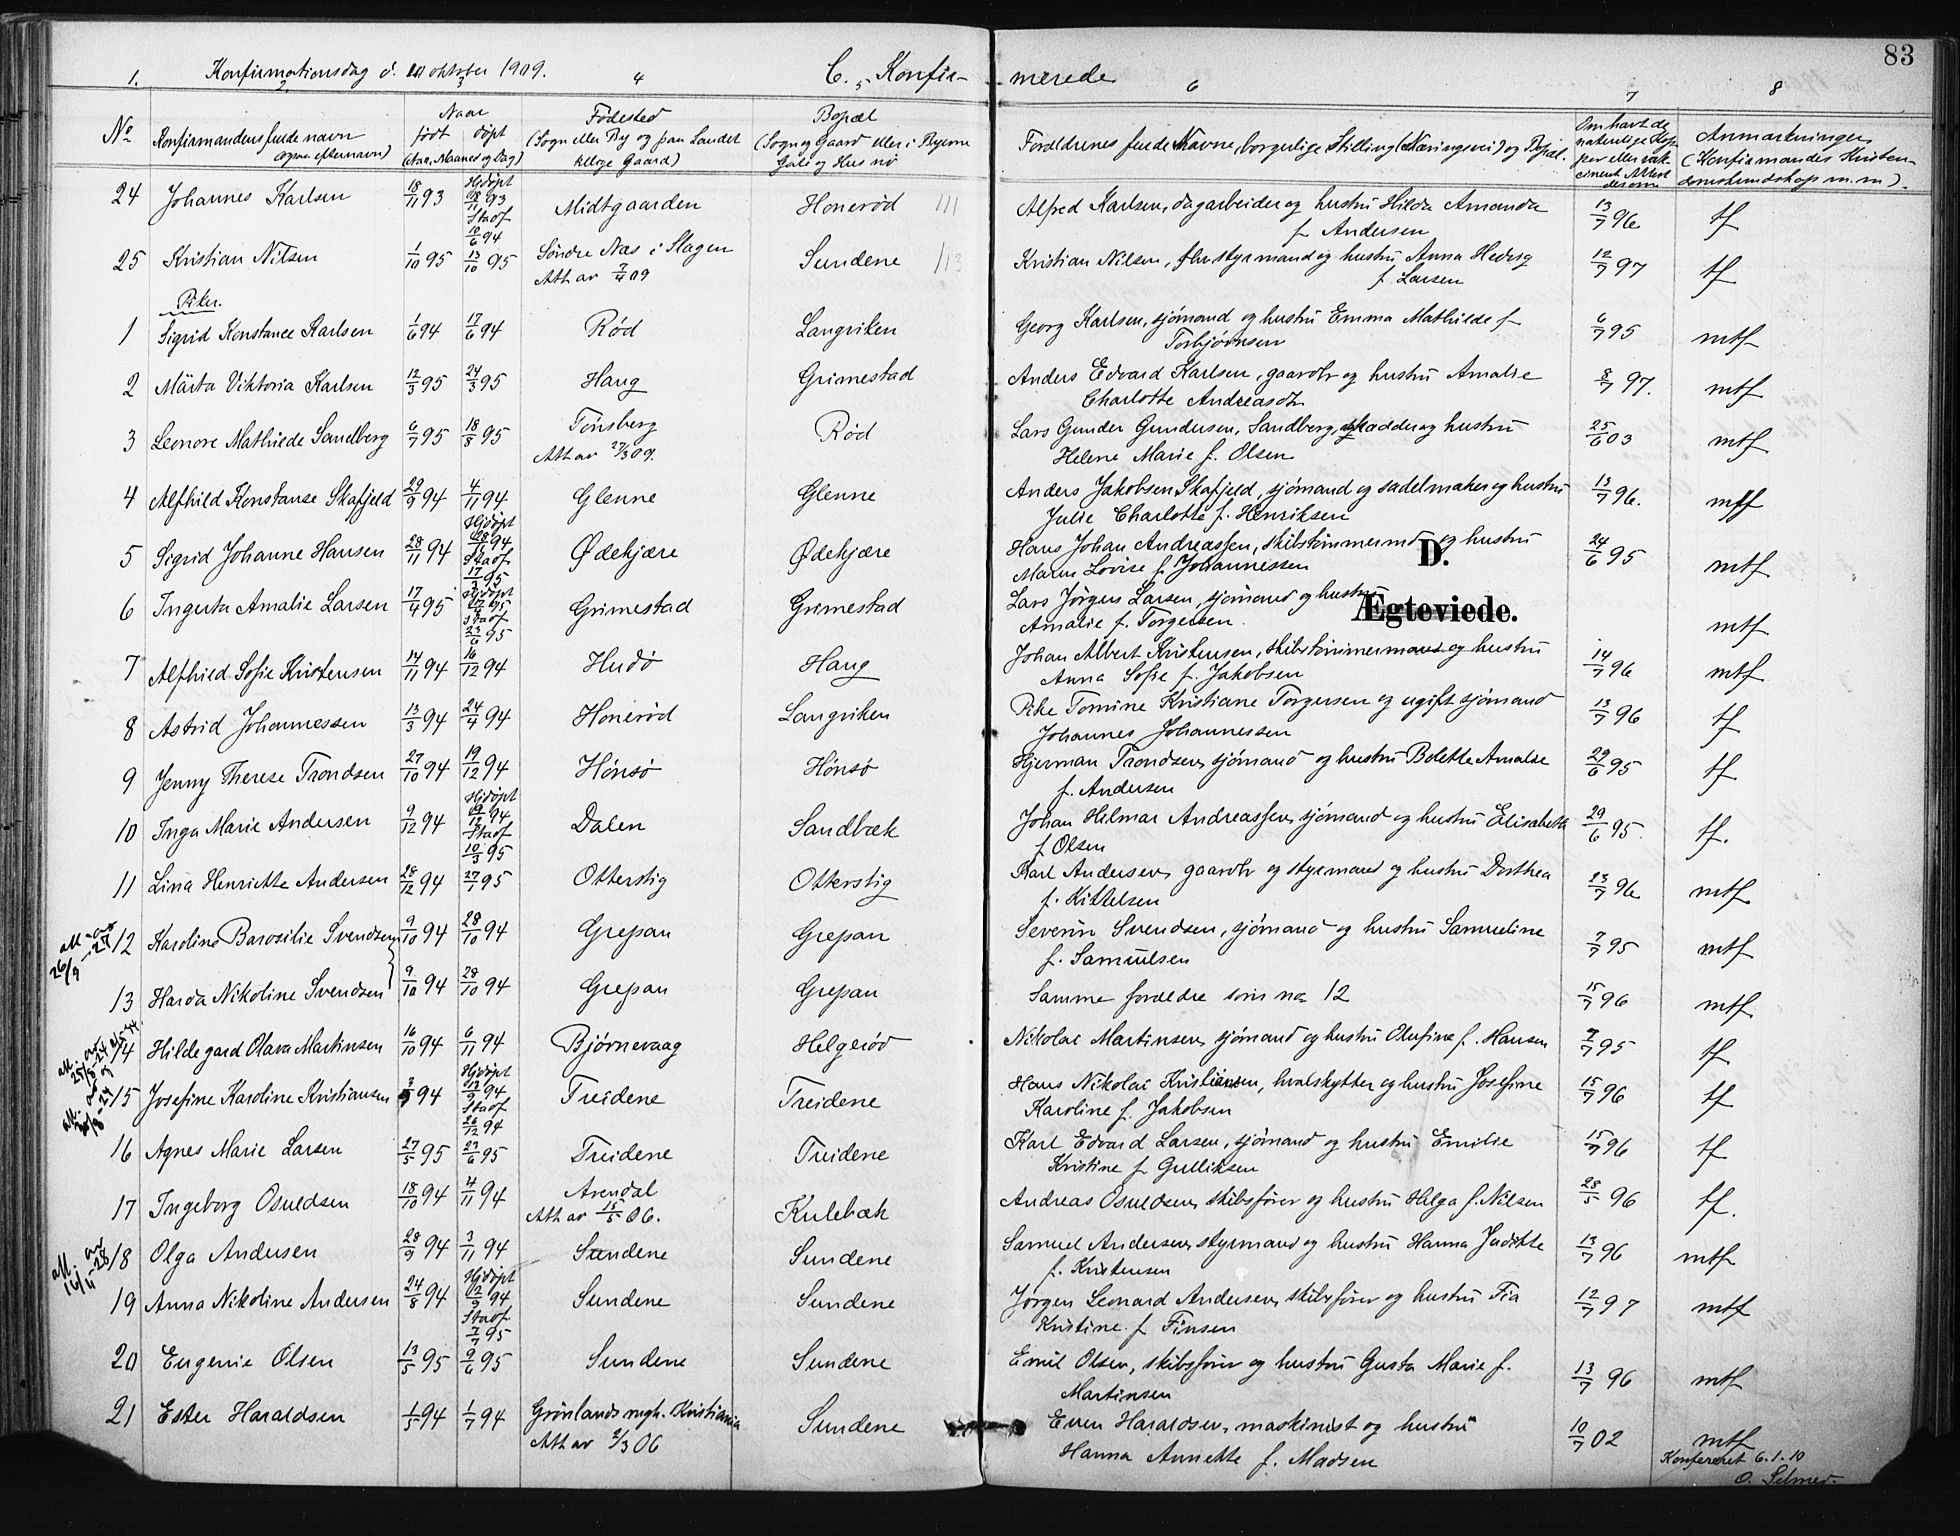 83
Konfirmationsdag d. 10 oktober 1909. C. Konfir- merede
1. 2 3 4 5 6 7 8
No Konfirmandens fulde navn (ogsaa efternavn) Naar født døpt (Aar, Maaned og Dag) Fødested (Sogn eller By og paa Landet tillige Gaard) Bopæl (Sogn og Gaard eller i Byerne Gade og Hus no Forældrenes fulde Navne, borgerlige Stilling (Næringsvei) og Bopæl. Om havt de naturlige Kopper eller vaccineret Attest derom Anmærkninger (Konfirmandes Kristendomskundskap m.m).
24 Johannes Karlsen 18/11 93 Hjdøpt 18/11 93 Stadf 10/6 94 Midtgaarden Honerød 111 Alfred Karlsen, dagarbeider og hustru Hilda Amanda f. Andersen 13/7 96 tf
25 Kristian Nilsen 1/10 95 13/10 95 Søndre Næs i Slagen Att av 7/4 09 Sundene 113 Kristian Nilsen, fhv styrmand og hustru Anna Hedvig f. Larsen 12/7 97 tf
Piker.
1 Sigrid Konstance Karlsen 1/6 94 17/6 94 Rød Langviken Georg Karlsen, sjømand og hustru Emma Mathilde f Torbjørnsen 6/7 95 mtf
2 Märta Viktoria Karlsen 12/3 95 24/3 95 Haug Grimestad Anders Edvard Karlsen, gaardbr og hustru Amalie Charlotte Andreasdt 8/7 97. mtf
3 Leonore Mathilde Sandberg 6/7 95 18/8 95 Tønsberg Att av 27/3 09. Rød Lars Gunder Gundersen, Sandberg, skrædder og hustru Helene Marie f. Olsen 25/6 03 mtf
4 Alfhild Konstanse Skafjeld 29/9 94 4/11 94 Glenne Glenne Anders Jakobsen Skafjeld, sjømand og sadelmaker og hustru Julie Charlotte f. Henriksen 13/7 96. mtf
5 Sigrid Johanne Hansen 28/11 94 Hjdøpt 94 Stadf 17/3 95 Ødekjære Ødekjære Hans Johan Andreassen, skibstømmermd og hustru Maren Lovise f. Johannessen 24/6 95 mtf
D.
Ægteviede.
6 Ingerta Amalie Larsen 17/4 95 Hjdøpt 17/4 95 Stadf 23/6 95 Grimestad Grimestad Lars Jørgen Larsen, sjømand og hustru Amalie f. Torgersen. mtf
7 Alfhild Sofie Kristensen 14/11 94 16/12 94 Hudø Haug Johan Albert Kristensen, skibstømmermand og hustru Anna Sofie f. Jakobsen 14/7 96 mtf
8 Astrid Johannessen 13/3 94 24/4 94 Honerød Langviken Pike Tomine Kristiane Torgersen og ugift sjømand Johannes Johannessen 13/7 96 tf
9 Jenny Therese Trondsen 27/10 94 19/12 94 Hønsø Hønsø Hjerman Trondsen, sjømand og hustru Bolette Amalie f. Andersen 29/6 95 tf
10 Inga Marie Andersen 9/12 94 Hjdøpt 19/12 94 Stadf 10/3 95 Dalen Sandbæk Johan Hilmar Andreassen, sjømand og hustru Elisabeth f Olsen 29/6 95. tf.
11 Lina Henriette Andersen 28/12 94 27/1 95 Otterstig Otterstig Karl Andersen, gaardbr og styrmand og hustru Dorthea f. Kittelsen 23/7 96 mtf
att. av 26/9 - 27 12 Karoline Barosilie Svendsen 9/10 94 28/10 94 Grepan Grepan Severin Svendsen, sjømand og hustru Samueline f. Samuelsen 7/7 95 mtf
13 Harda Nikoline Svendsen 9/10 94 28/10 94 Grepan Grepan Samme forældre som no 12 15/7 96 mtf
14 Hildegard Olava Martinsen 16/10 94 6/11 94 Bjørnevaag Helgerød Nikolai Martinsen, sjømand og hustru Olufine f. Hansen 7/7 95 tf
15 Josefine Karoline Kristiansen 94 Hjdøpt 12/9 94 Stadf 26/12 94 Treidene Treidene Hans Nikolai Kristiansen, hvalskytter og hustru Josefine Karoline f. Jakobsen 15/7 96 tf
16 Agnes Marie Larsen 27/5 95 23/6 95 Treidene Treidene Karl Edvard Larsen, sjømand og hustru Emilie Kristine f Gulliksen 15/7 96 tf
17 Ingeborg Osuldsen 18/10 94 4/11 94 Arendal Att av 15/5 06. Kulebæk Andreas Osuldsen, skibsfører og hustru Helga f. Nilsen 28/5 96 tf.
att. av 16/11 28 18 Olga Andersen 28/9 94 3/11 94 Sundene Sundene Samuel Andersen, styrmand og hustru Hanna Juditte f. Kristensen 13/7 96 mtf
19 Anna Nikoline Andersen 24/8 94 Hjdøpt 12/9 94 Stadf 7/7 95 Sundene Sundene Jørgen Leonard Andersen, skibsfører og hustru Fia Kristine f Finsen 12/7 97 mtf
20 Eugenie Olsen 13/5 95 9/6 95 Sundene Sundene Emil Olsen, skibsfører og hustru Gusta Marie f. Martinsen 13/7 96 mtf
21 Ester Haraldsen 1/5 94 1/7 94 Grønlands mgh. Kristiania Att av 2/3 06 Sundene Even Haraldsen, maskinist og hustru Hanna Annette f. Madsen 10/7 02 mtf
Konfereret 6.1.10
O. Selmer.